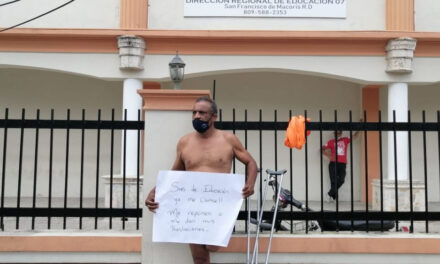 DIRECCIÓN REGIONAL DE EDUCACIÓN 07
San Francisco de Macorís R.D
809-588-2353
Sres de Educación
ya me Cansé!!
Me reponen o
me dan mis